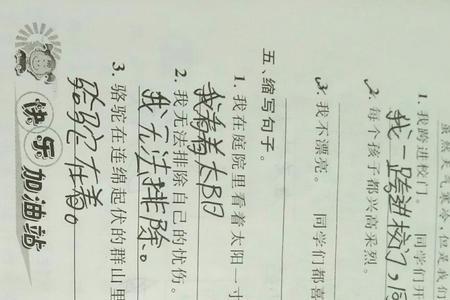 虽然天气寒冷,但是我们
1. 我跨进校门。 同学们开
我一跨进校门,同
2. 每个孩子都兴高采烈。
3. 我不漂亮。 同学们都喜
五、缩写句子。
1. 我在庭院里看着太阳一寸
我看着太阳
2. 我无法排除自己的忧伤。
我无法排除。
3. 骆驼在连绵起伏的群山里
骆驼在着。
快乐加油站